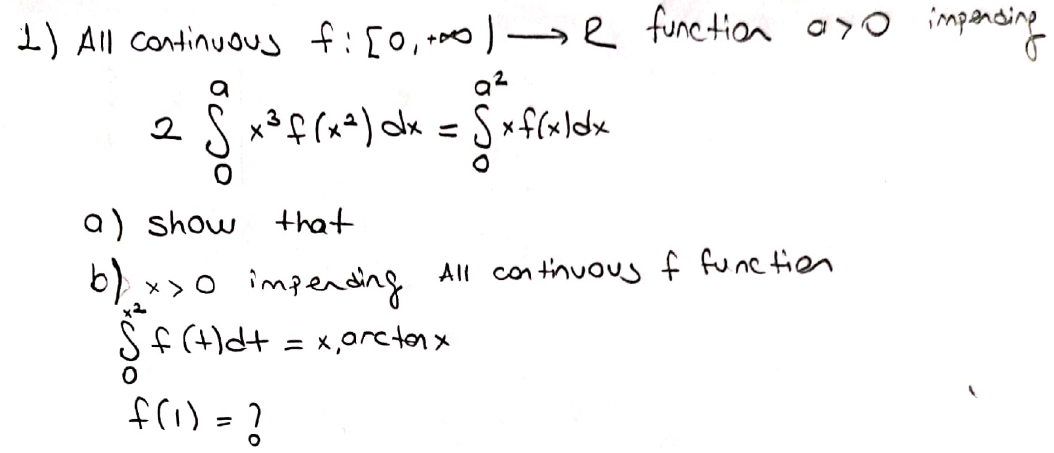 1) All continuous f: [0, +∞) → R function a>0 impending
2 ∫₀ᵃ x³ f(x²) dx = ∫₀^a² x f(x) dx
a) show that
b) x>0 impending All continuous f function
∫₀^x² f(t)dt = x.arctanx
f(1) = ?